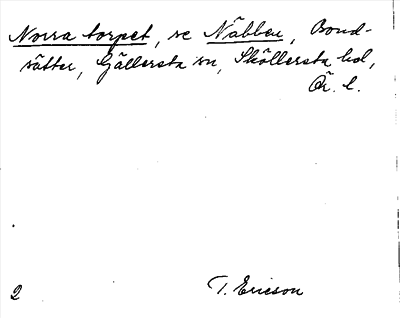 Norra torpet, se Näbben, Bond-
sätter, Gällersta sn, Sköllersta hd,
Ör. l.
2
T. Ericson